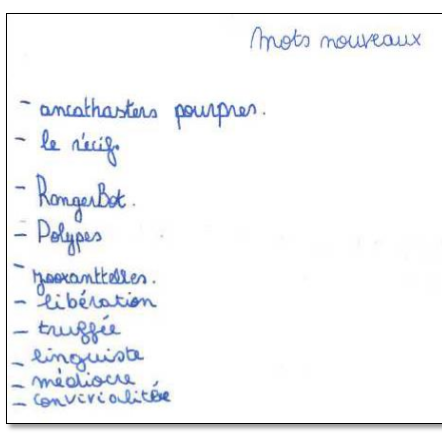 mots nouveaux
- ancathasters pourpres.
- le récif.
- RangerBot.
- Polypes
- zooxanttelles.
- libération
- truffée
- linguiste
- médiocre
- convivialitée